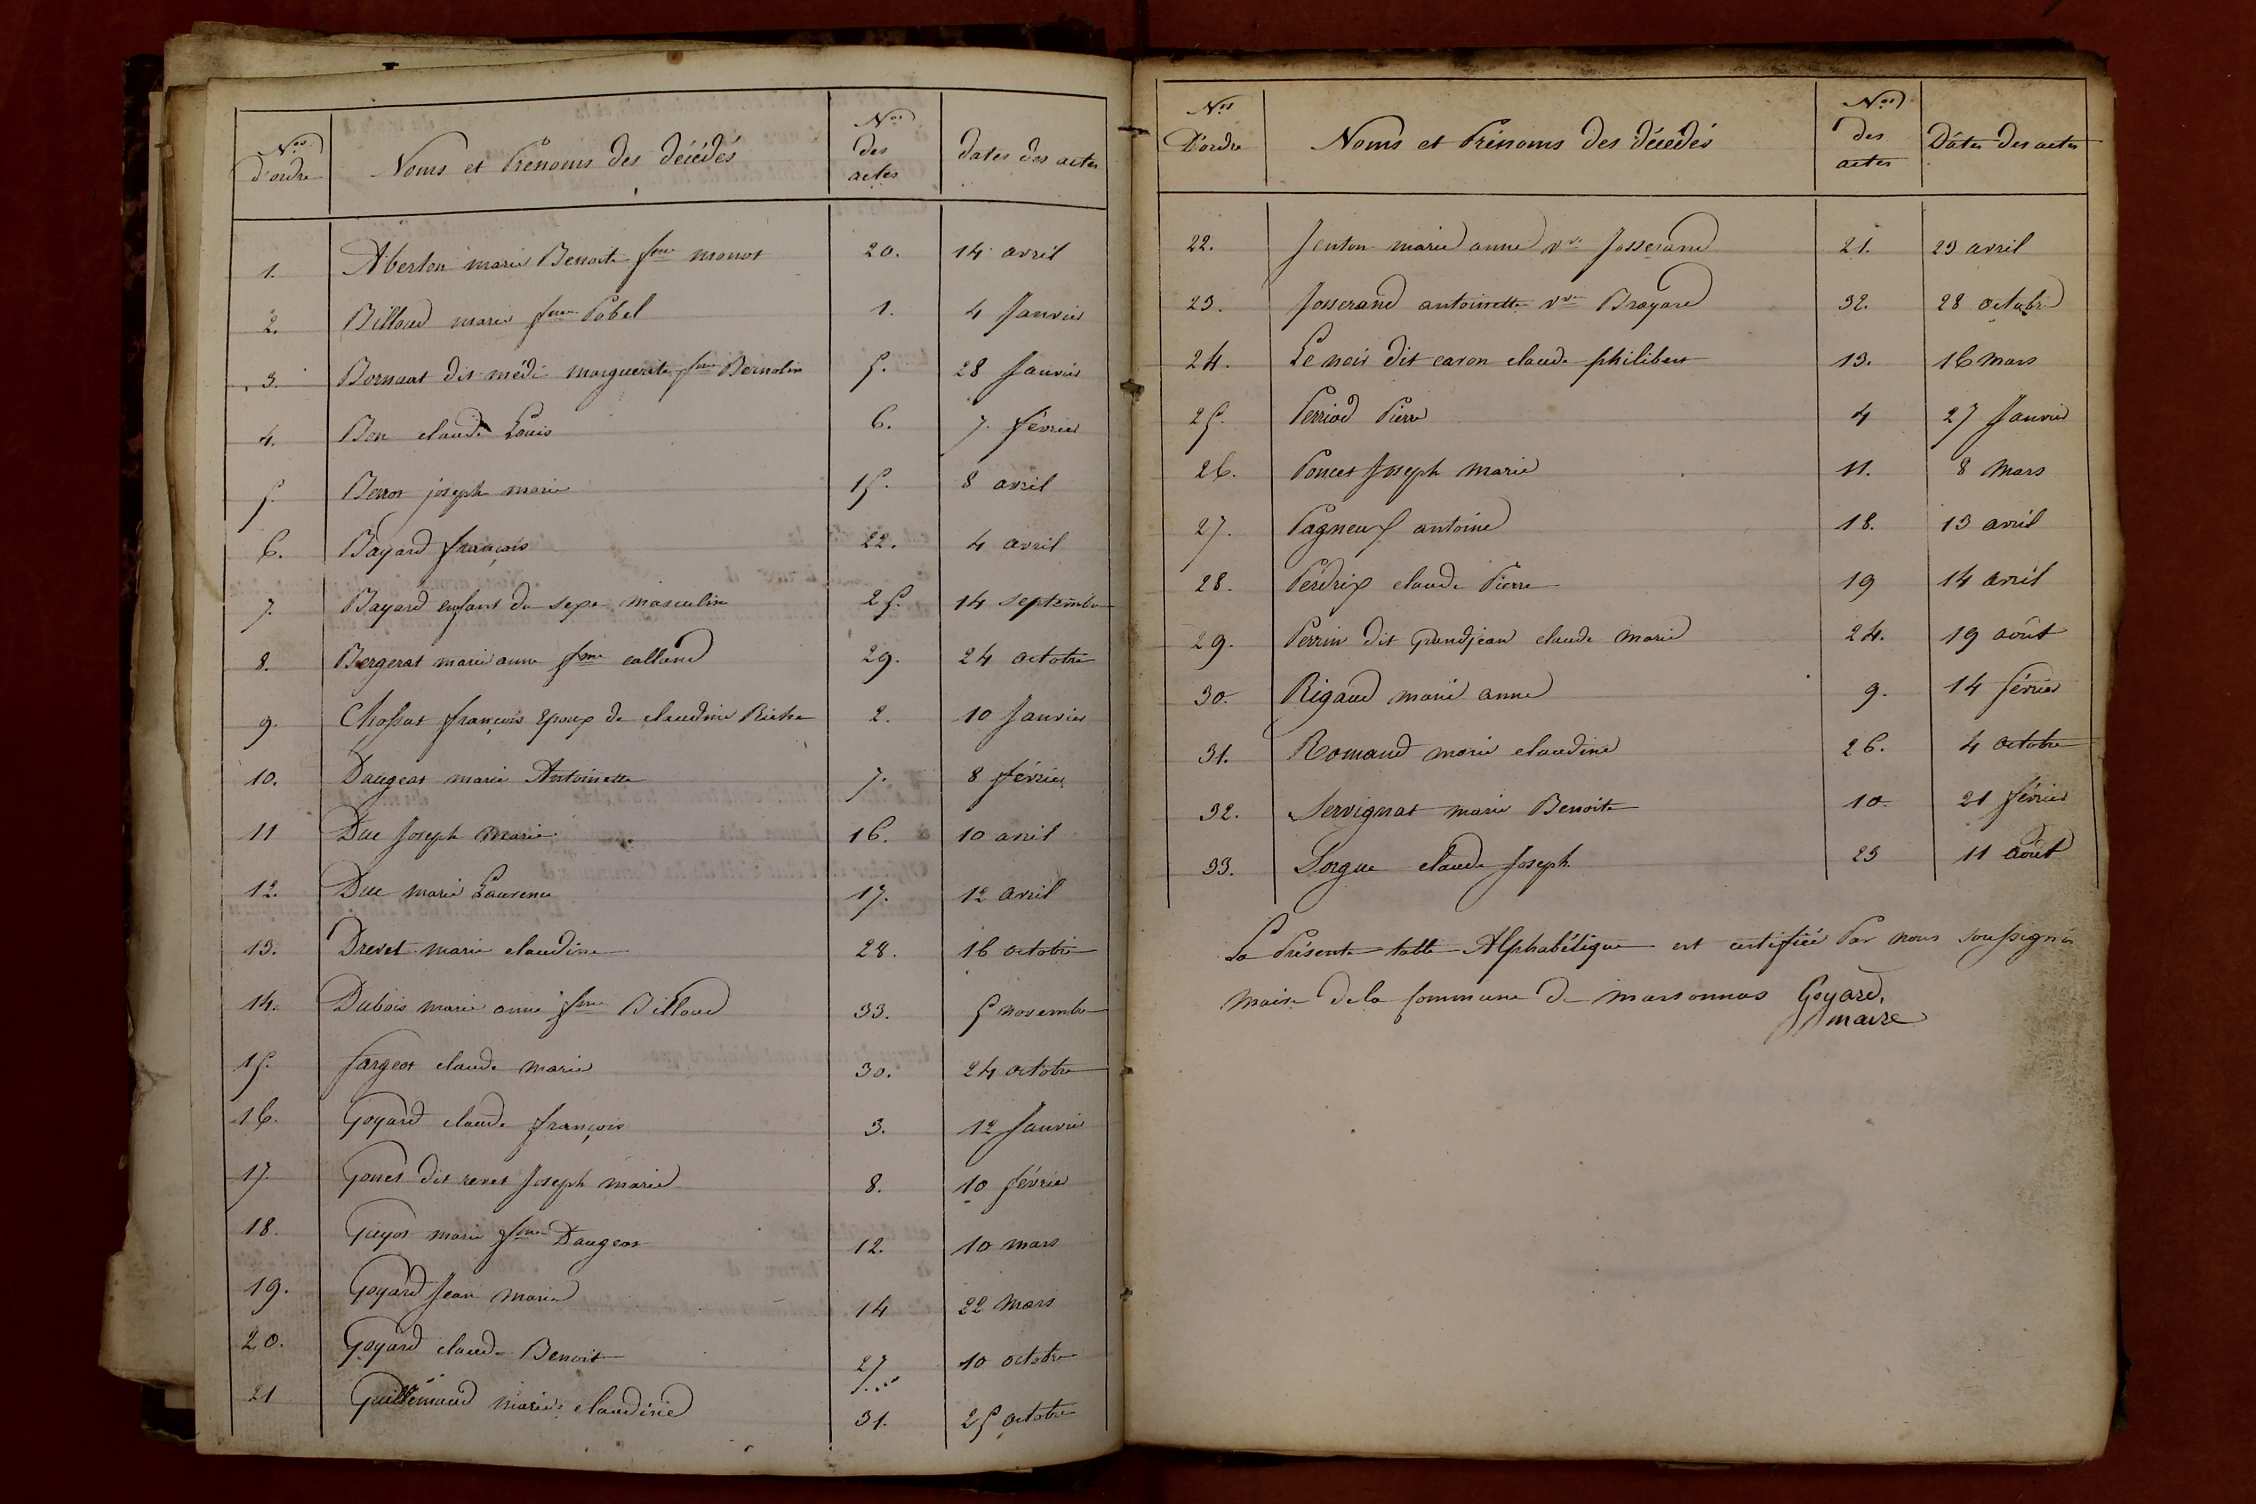 Nos d'ordre Noms et Prénoms des décédés Nos des actes dates des actes
1. Aberton marie Benoite fme monot 20. 14 avril
2. Billoud marie fme Pobel 1. 4 Janvier
3. Bornuat dit médi marguerite fme Bernolin 5. 28 Janvier
4. Bon claude Louis 6. 7. février
5. Berron joseph marie 15. 8 avril
6. Bayard françois 22. 4 avril
7. Bayard enfant du sexe masculin 25. 14 septembre
8. Bergerat marie anne fme calland 29. 24 octobre
9. Chossat françois Epoux de claudine 2. 10 Janvier
10. Daugeat marie Antoinette 7. 8 février
11 Duc Joseph marie 16. 10 avril
12. Duc marie Laurence 17. 12 avril
13. Drevet marie claudine 28. 16 octobre
14. Dubois marie anne fme Billoud 33. 5 novembre
15. fargeot claude marie 30. 24 octobre
16. Goyard claude françois 3. 12 Janvier
17. Gonet dit revet Joseph marie 8. 10 février
18. Guyot marie fme Daugeat 12. 10 mars
19. Goyard Jean marie 14 22 mars
20. Goyard claude Benoit 27 10 octobre
21 Guillemaud marie claudine 31. 25 octobre
Nos D'ordre Noms et Prénoms des décédés Nos des actes Dâtes des actes
22. Jenton marie anne vve Josserand 21. 23 avril
23. Josserand antoinette vve Brayard 32. 28 octobre
24. Le noir dit caron claude philibert 13. 16 mars
25. Perriod Pierre 4 27 Janvier
26. Poncet Joseph marie 11. 8 mars
27. Pagneux antoine 18. 13 avril
28. Perdrix claude Pierre 19 14 avril
29. Perrin dit Grandjean claude marie 24. 19 août
30. Rigaud marie anne 9. 14 février
31. Romand marie claudine 26. 4 octobre
32. Servignat marie Benoite 10. 21 février
33. Sorgue claude Joseph 23 11 août
La Présente table Alphabétique est certifiée Par nous soussigné
maire de la Commune de marsonnas Goyard,
maire